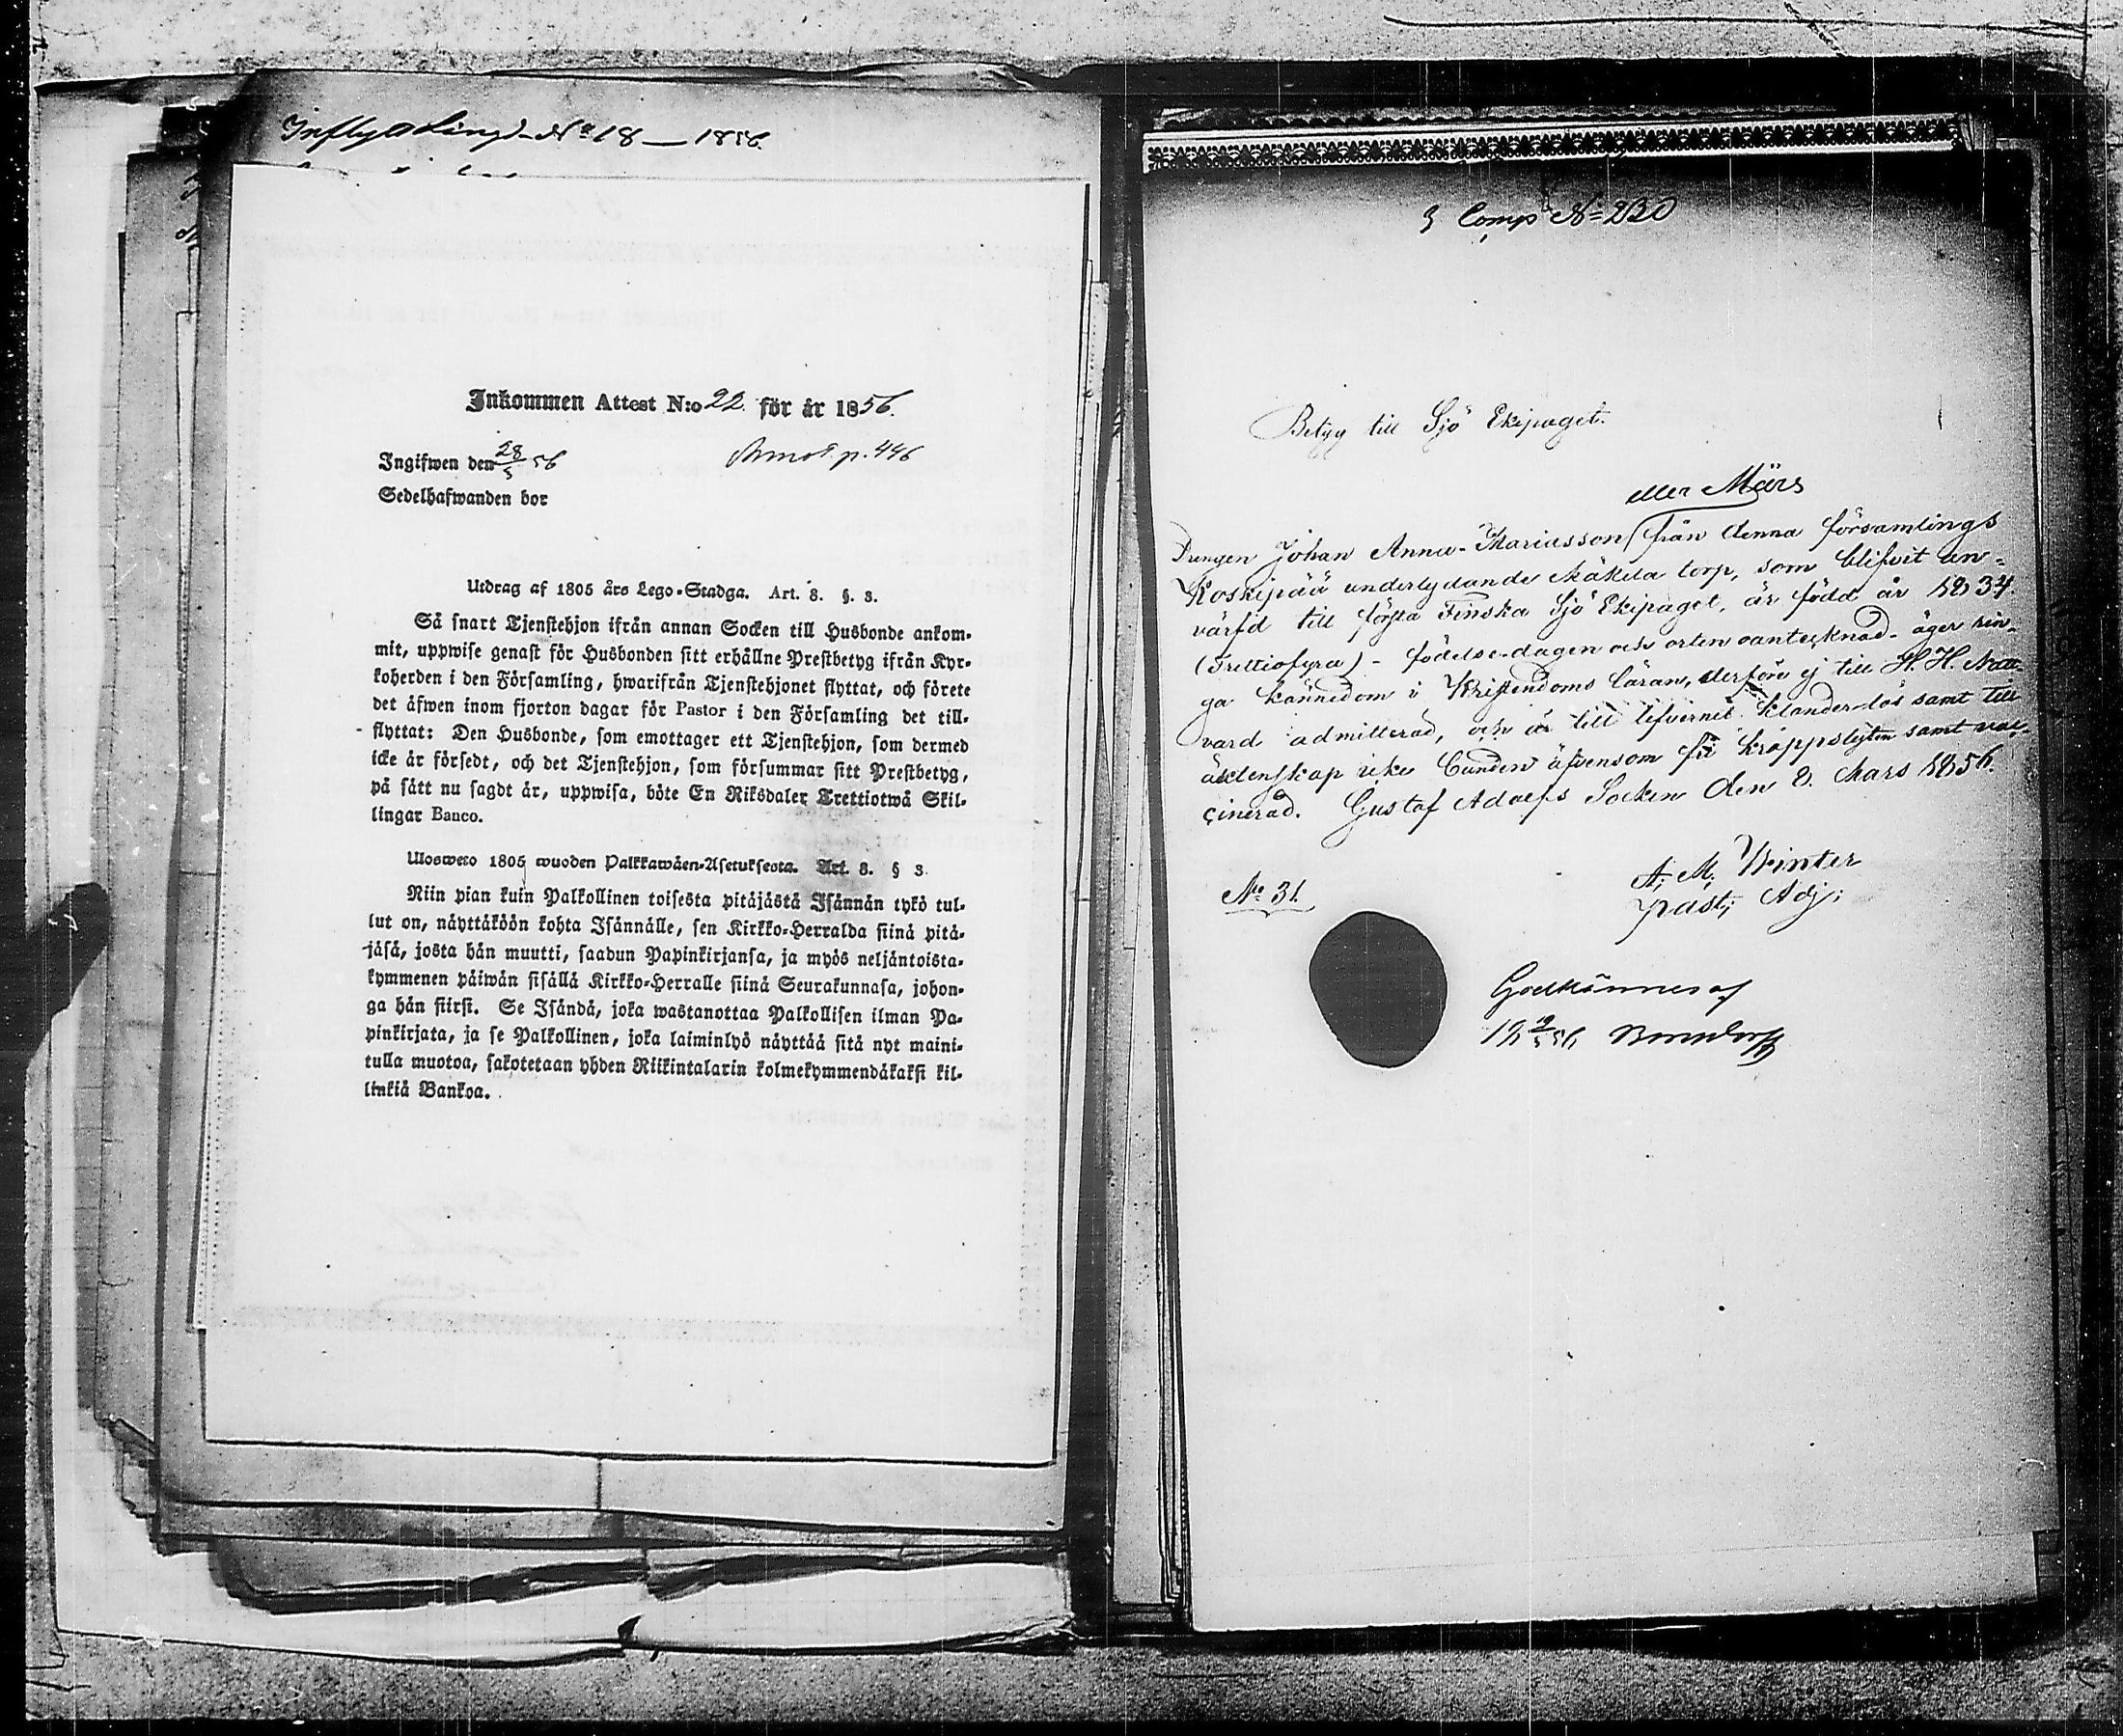 Inflyttning N:o 18 — 1856.
Inkommen Attest N:o 22. för år 1856.
Ingifwen den 28/5 56 p. 446
Sedelhafwanden bor
Utdrag af 1805 års Lego-Stadga. Art. 8. §. 3.
Så snart Tjenstehjon ifrån annan Socken till Husbonde ankom-
mit, uppwise genast för Husbonden sitt erhållne Prestbetyg ifrån Kyr-
koherden i den Församling, hwarifrån Tjenstehjonet flyttat, och förete
det äfwen inom fjorton dagar för Pastor i den Församling det till-
flyttat: Den Husbonde, som emottager ett Tjenstehjon, som dermed
icke är försedt, och det Tjenstehjon, som försummar sitt Prestbetyg,
på sätt nu sagdt är, uppwisa, böte En Riksdaler Trettiotwå Skil-
lingar Banco.
Ulosweto 1805 wuoden Palkkawäen-Asetuksesta. Art. 8. § 3.
Niin pian kuin Palkollinen toisesta pitäjästä Isännän tykö tul-
lut on, näyttäköön kohta Isännälle, sen Kirkko-Herralda siinä pitä-
jäsä, josta hän muutti, saadun Papinkirjansa, ja myös neljäntoista-
kymmenen päiwän sisällä Kirkko-Herralle siinä Seurakunnasa, johon-
ga hän siirsi. Se Isändä, joka wastanottaa Palkollisen ilman Pa-
pinkirjata, ja se Palkollinen, joka laiminlyö näyttää sitä nyt maini-
tulla muotoa, sakotetaan yhden Riikintalarin kolmekymmendäkaksi kil-
linkiä Bankoa.
3 Comp N:o 230
Betyg till Sjö Ekipaget.
eller Märs
Drengen Johan Anna-Mariasson från denna församlings
Koskipää underlydande Mäkelä torp, som blifvit an-
värfd till första Finska Sjö Ekipaget, är född år 1834.
(Trettiofyra) - födelse-dagen och orten oantecknad - äger rin-
ga kännedom i Kristendoms läran, derföre ej till H. H. Natt-
vard admitterad, och är till lefvernet klanderlös samt till
äktenskap icke bunden äfvensom fri kroppslyten samt vac-
cinerad. Gustaf Adolfs Socken den 8. Mars 1856.
A. M. Winter
Past. Adj.
N:o 31.
Godkännes af
18 12/5 56